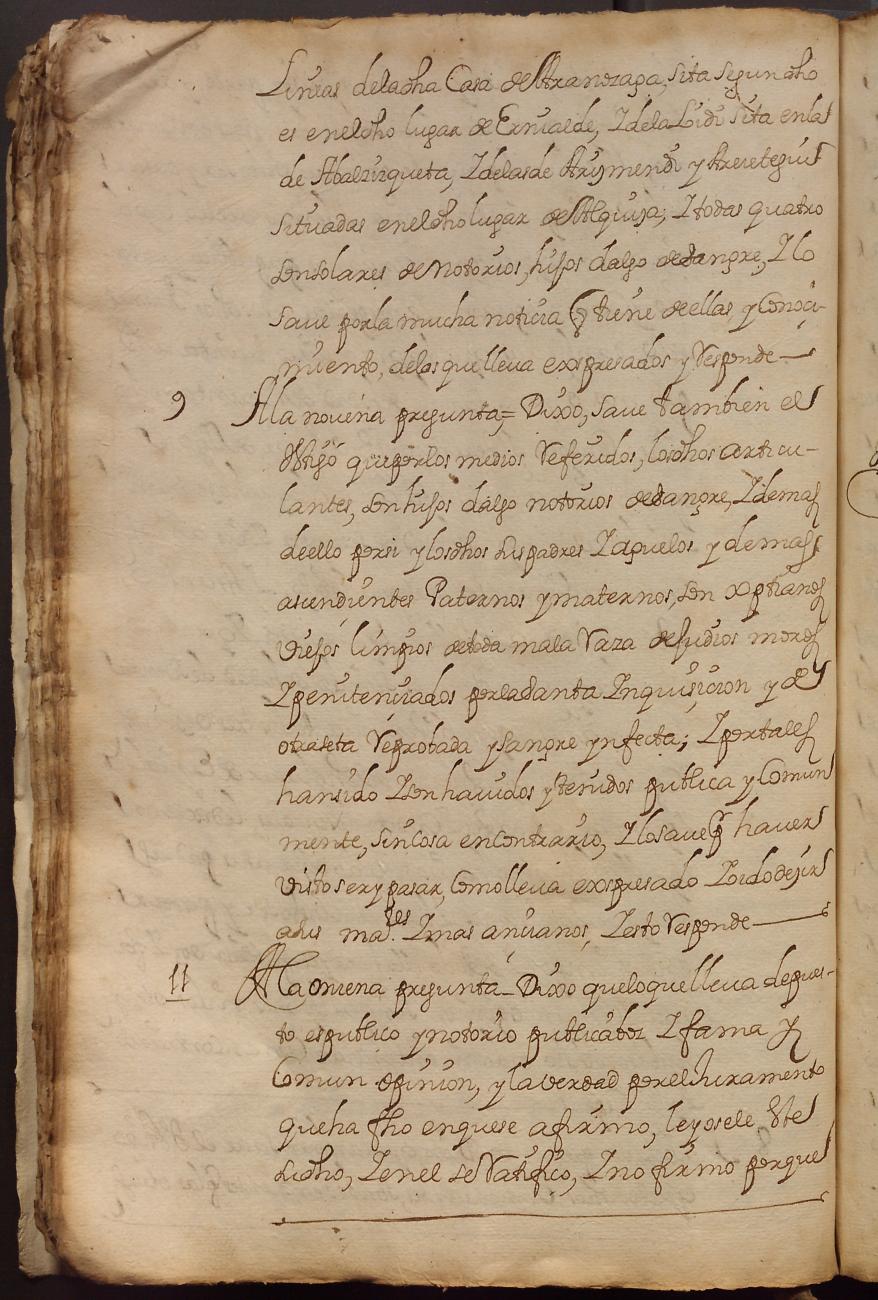 Lineas deladha Casa de Aranozaga, sita segun dho
es eneldho lugar de Ernialde, I dela Lidi sita enlas
de Abalzizqueta, I delasde Arismendi y Arretegui
situadas eneldho lugar de Alquiza; I todas quatro
son solares de notorios, hijos dalgo de sangre, I lo
save por la mucha noticia q tiene de ellas y Conoci-
miento, delos que lleva expresados y Responde
9 Ala novena pregunta = Dixo, save tambien el
tstigo que por los medios Referidos, los dhos articu-
lantes, son hijos dalgo notorios de sangre, I demas
de ello por si y los dhos sus padres I aguelos y demas
ascendientes Paternos y maternos, son xptianos
viejos limpios de toda mala Raza de Judios moros
I penitenciados por la Santa Inquisicion y de
otra seta Reprobada y sangre ynfecta; I por tales
han sido I son havidos y tenidos publica y Comun
mente, sin cosa encontrario, I lo save por haver
visto ser y pasar, Como lleva expresado I oido dezir
a sus mares. I mas ancianos, I esto Responde
11 Ala oncena pregunta Dixo que lo que lleva depues-
to es publico y notorio publica boz I fama y
Comun opinion, y la verdad por el Juramento
que ha fho en que se afirmo, leyosele este
su dho, I en el se Ratifico, I no firmo porque